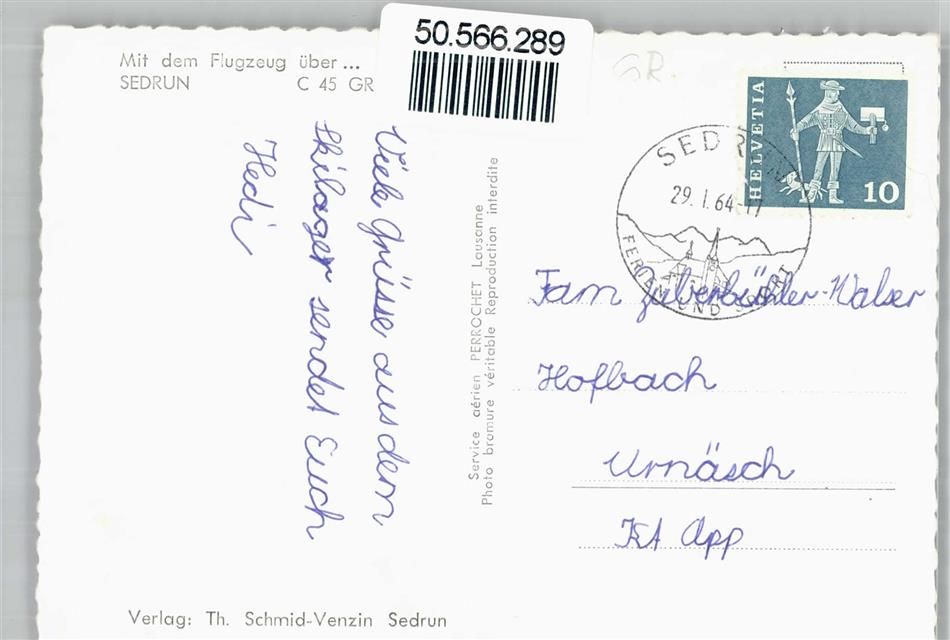 50.566.289
Mit dem Flugzeug über ...
SEDRUN C 45 GR
GR.
Viele Grüsse aus dem
Skilager sendet Euch
Hedi
Service aérien PERROCHET Lausanne
Photo bromure véritable Reproduction interdite
HELVETIA
10
SEDRUN
29.1.64-17
FERIEN UND SPORT
Fam Zuberbühler-Walser
Hofbach
Urnäsch
Kt App
Verlag: Th. Schmid-Venzin Sedrun